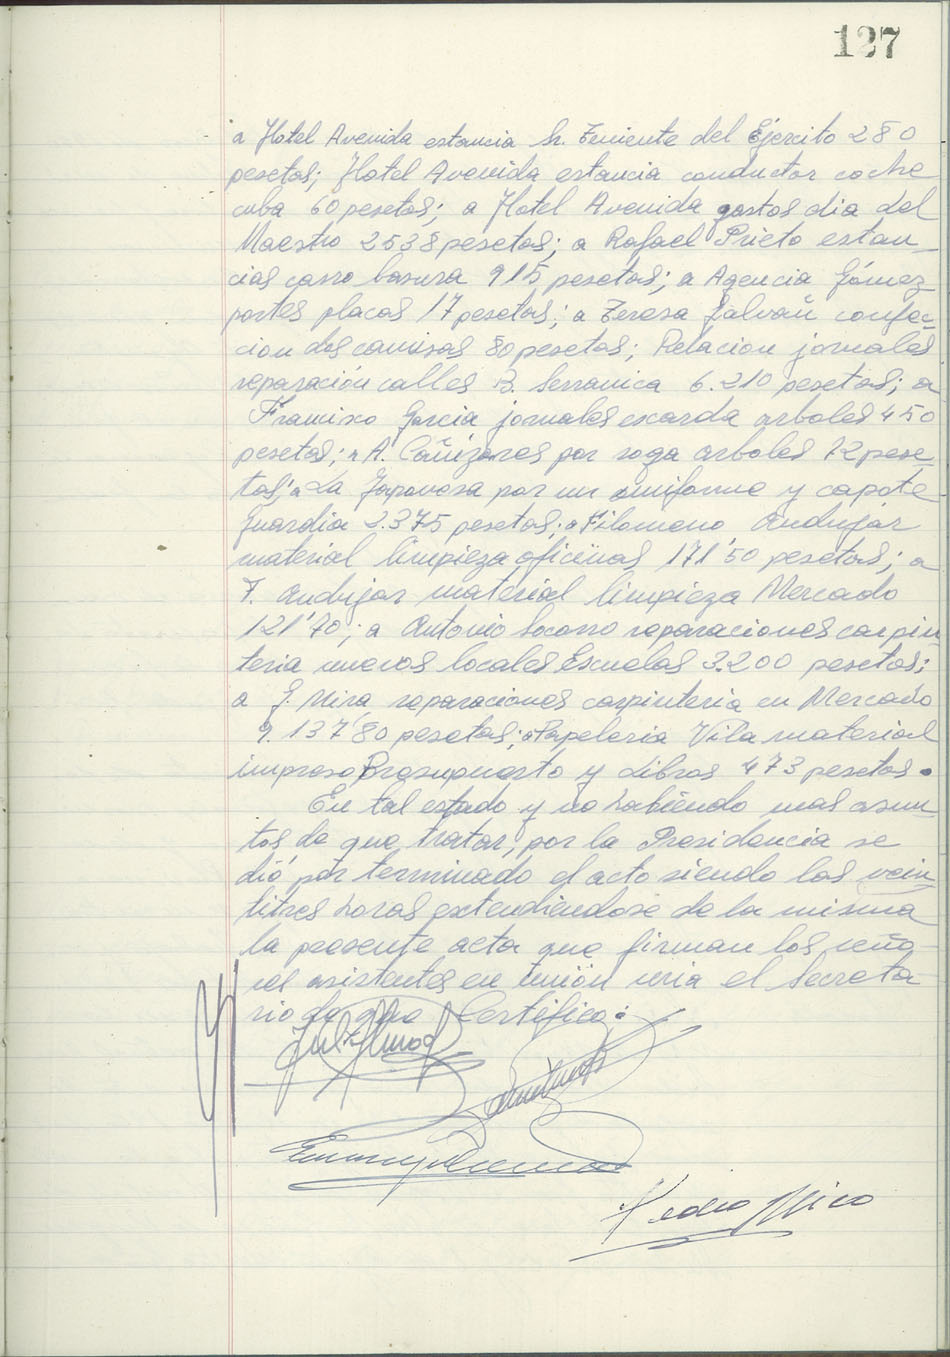 127
a Hotel Avenida estancia Sr. Teniente del Ejercito 280
pesetas; Hotel Avenida estancia conductor coche
cuba 60 pesetas; a Hotel Avenida gastos dia del
Maestro 2538 pesetas; a Rafael Prieto estan-
cias carro basura 915 pesetas; a Agencia Gómez
portes placas 17 pesetas; a Teresa Galvañ confec-
cion dos camisas 80 pesetas; Relacion jornales
reparación calles B. Serranica 6.210 pesetas; a
Francisco Garcia jornales escarda arboles 450
pesetas; a A. Cañizares por soga arboles 72 pese-
tas; a La Japonesa por un uniforme y capote
Guardia 2.375 pesetas; a Filomeno Andujar
material limpieza oficinas 171'50 pesetas; a
F. Andujar material limpieza Mercado
121'70; a Antonio Socorro reparaciones carpin
teria nuevos locales Escuelas 3.200 pesetas;
a G. Mira reparaciones carpinteria en Mercado
9.137'80 pesetas; a Papeleria Vila material
impreso Presupuesto y Libros 473 pesetas.
En tal estado y no habiendo mas asun-
tos de que tratar, por la Presidencia se
dió por terminado el acto siendo las vein
titres horas extendiendose de la misma
la presente acta que firman los seño
res asistentes en unión mia el Secreta
rio de que Certifico:
Pedro Mico